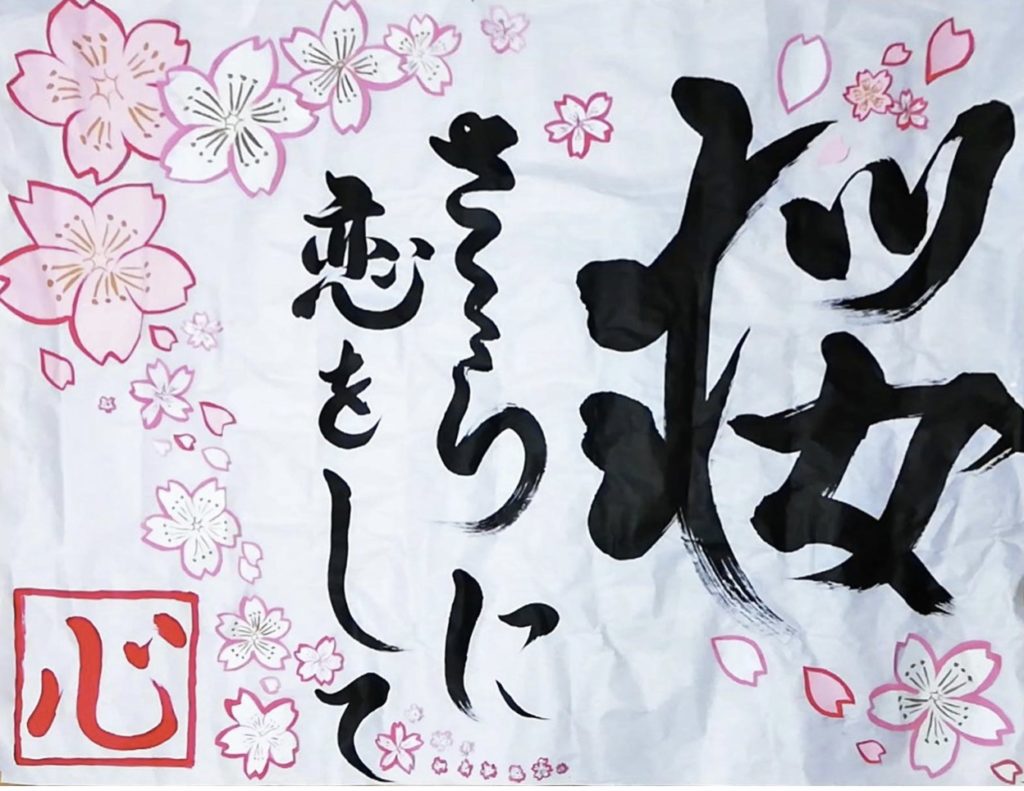 桜
さくらに
恋をして
心